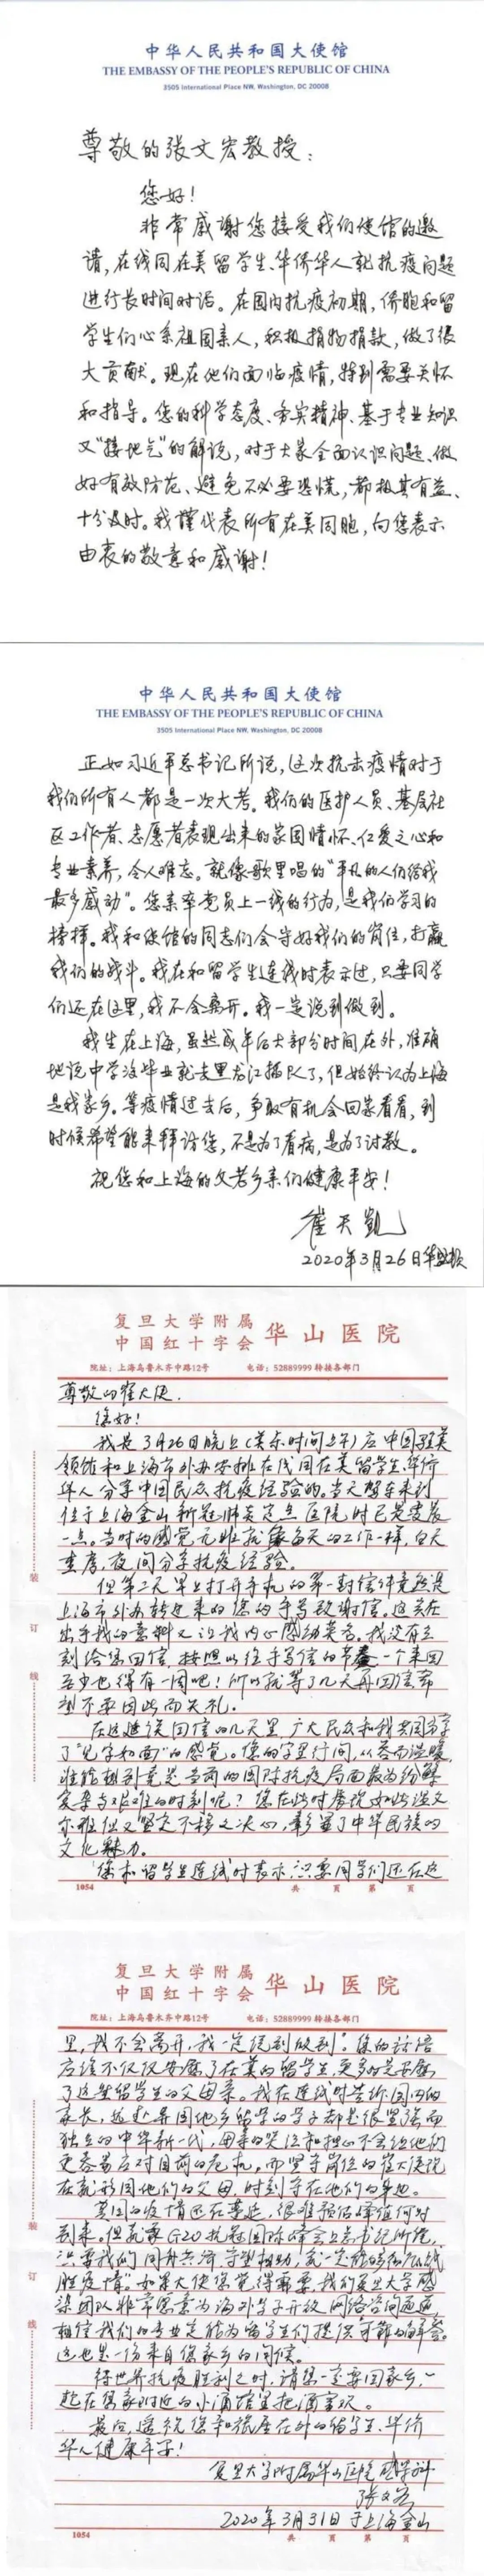 中华人民共和国大使馆
THE EMBASSY OF THE PEOPLE'S REPUBLIC OF CHINA
3505 International Place NW, Washington, DC 20008
尊敬的张文宏教授：
您好！
非常感谢您接受我们使馆的邀
请，在线同在美留学生、华侨华人就抗疫问题
进行长时间对话。在国内抗疫初期，侨胞和留
学生们心系祖国亲人，积极捐物捐款，做了很
大贡献。现在他们面临疫情，特别需要关怀
和指导。您的科学态度、务实精神、基于专业知识
又“接地气”的解说，对于大家全面认识问题、做
好有效防范、避免不必要恐慌，都极其有益、
十分及时。我谨代表所有在美同胞，向您表示
由衷的敬意和感谢！
中华人民共和国大使馆
THE EMBASSY OF THE PEOPLE'S REPUBLIC OF CHINA
3505 International Place NW, Washington, DC 20008
正如习近平总书记所说，这次抗击疫情对于
我们所有人都是一次大考。我们的医护人员、基层社
区工作者、志愿者表现出来的家国情怀、仁爱之心和
专业素养，令人难忘。就像歌里唱的“平凡的人们给我
最多感动”。您亲率党员上一线的行为，是我们学习的
榜样。我和使馆的同志们会守好我们的岗位，打赢
我们的战斗。我在和留学生连线时表示过，只要同学
们还在这里，我不会离开。我一定说到做到。
我生在上海，虽然成年后大部分时间在外，准确
地说中学没毕业就去黑龙江插队了，但始终认为上海
是我家乡。等疫情过去后，争取有机会回家看看，到
时候希望能来拜访您，不是为了看病，是为了讨教。
祝您和上海的父老乡亲们健康平安！
崔天凯
2020年3月26日华盛顿
复旦大学附属
中国红十字会 华山医院
院址：上海乌鲁木齐中路12号 电话：52889999 转接各部门
尊敬的崔大使：
您好！
我是3月26日晚上（美东时间上午）应中国驻美
领馆和上海市外办安排在线同在美留学生、华侨
华人分享中国民众抗疫经验的。当天驾车来到
位于上海金山新冠肺炎定点医院时已是凌晨
一点。当时的感觉无非就像每天的工作一样，白天
查房，夜间分享抗疫经验。
但第二天早上打开手机的第一封信件竟然是
上海市外办转过来的您的手写致谢信。这实在
出乎我的意料又让我内心感动莫名。我没有立
刻给您回信，按照以往手写信的节奏一个来回
至少也得有一周吧！所以就等了几天再回信希
望不要因此而失礼。
在这延误回信的几天里，广大民众和我共同分享
了“见字如面”的感觉。您的字里行间，从容而温暖，
谁能想到竟是当前的国际抗疫局面最为纷繁
复杂与艰难的时刻呢？您在此时展现如此温文
尔雅但又坚定不移之决心，彰显了中华民族的
文化魅力。
“您和留学生连线时表示，只要同学们还在这
装
订
线
1054 共 页 第 页
复旦大学附属
中国红十字会 华山医院
院址：上海乌鲁木齐中路12号 电话：52889999 转接各部门
里，我不会离开，我一定说到做到”。您的话语
应该不仅仅安慰了在美的留学生，更多的是安慰
了这些留学生的父母亲。我在连线时告诉国内的
家长，远赴异国他乡留学的学子都是很坚强而
独立的中华新一代，母亲的哭泣和担心不会让他们
更容易应对目前的危机。而坚守岗位的崔大使现
在就形同他们的父母，时刻守在他们的身边。
美国的疫情还在蔓延，很难预估峰值何时
到来。但就像G20抗冠国际峰会上总书记所说，
“只要我们同舟共济、守望相助，就一定能够彻底战
胜疫情”。如果大使您觉得需要，我们复旦大学感
染团队非常愿意为海外学子开放网络咨询通道，
相信我们的专业定能为留学生们提供可靠的解答。
这也是一份来自您家乡的问候。
待世界抗疫胜利之时，请您一定要回家乡，一
起在您家附近的小酒馆里把酒言欢。
最后，遥祝您和旅居在外的留学生、华侨
华人健康平安！
复旦大学附属华山医院感染科
张文宏
2020年3月31日于上海金山
装
订
线
1054 共 页 第 页